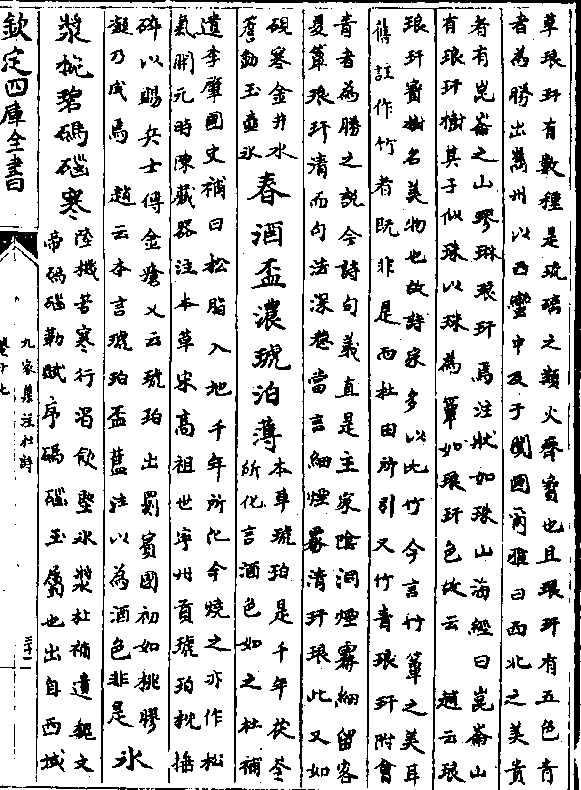 草琅玕有數種是琉璃之類火齊寳也且琅玕有五色青
者為勝出嶲州以西蠻中及于闐國爾雅曰西北之美貴
者有崑崙之山璆琳琅玕焉注狀如珠山海經曰崑崙山
有琅玕樹其子似珠以珠為簟如琅玕色故云 趙云琅
琅玕寳樹名美物也故詩家多以比竹今言竹簟之美耳
舊註作竹者既非是而杜田所引又竹青琅玕附會
青者為勝之説今詩句義直是主家陰洞煙霧細留客
夏簟琅玕清而句法深穩當言細煙霧清玕琅此又如
硯寒金井水
簷動玉壺冰
春酒盃濃琥泊薄
本草琥珀是千年茯苓
所化言酒色如之杜補
遺李肇國史補曰松脂入地千年所化今燒之亦作松
氣開元時陳藏器注本草宋高祖世寧州貢琥珀枕擣
碎以賜兵士傅金瘡又云琥珀出罽賓國初如桃膠
凝乃成焉 趙云本言琥珀盃舊注以為酒色非是
冰
漿椀碧碼碯寒
陸機苦寒行渴飲堅冰漿杜補遺魏文
帝碼碯勒賦序碼碯玉屬也出自西域
欽定四庫全書
九家集注杜詩